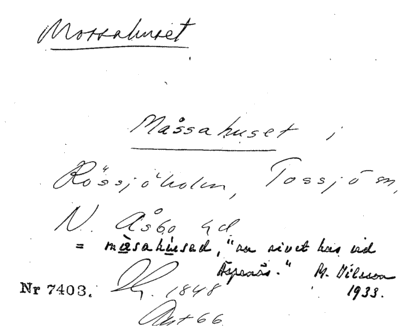 Mossahuset
Måssahuset i
Rössjöholm, Tossjö sn,
N. Åsbo hd
= måsahúsed, "en rivet hus vid
Aspenäs." M. Nilsson
Nr 7403. 1848 1933.
66